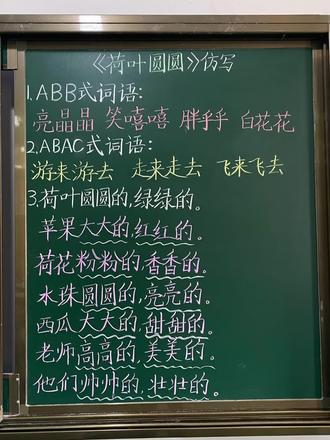 《荷叶圆圆》仿写
1.ABB式词语:
亮晶晶 笑嘻嘻 胖乎乎 白花花
2.ABAC式词语:
游来游去 走来走去 飞来飞去
3.荷叶圆圆的,绿绿的。
苹果大大的,红红的。
荷花粉粉的,香香的。
水珠圆圆的,亮亮的。
西瓜大大的,甜甜的。
老师高高的,美美的。
他们帅帅的,壮壮的。